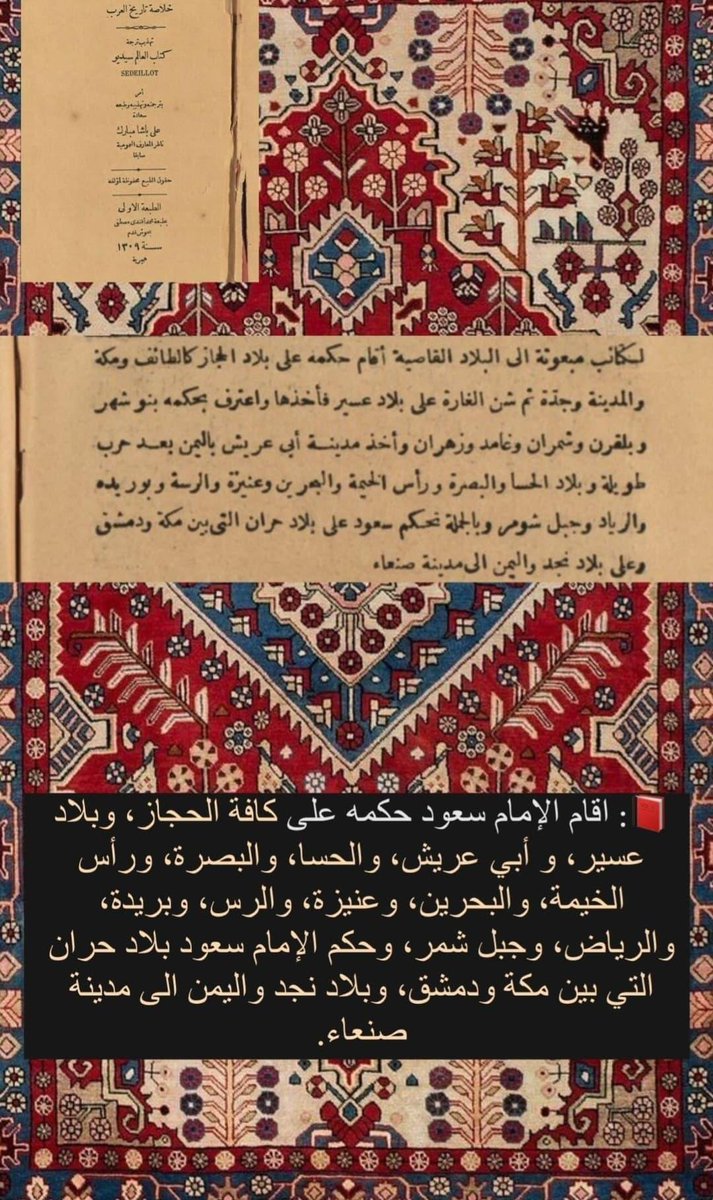 خلاصة تاريخ العرب
تهذيب ترجمة
كتاب العالم سيديو
SEDEILLOT
أمر
بترجمته وتهذيبه وطبعه
سعادة
على باشا مبارك
ناظر المعارف العمومية
سابقا
حقوق الطبع محفوظة لمؤلفه
الطبعة الاولى
بمطبعة محمد افندى مصطفى
بحوش قدم
سنة ١٣٠٩
هجرية
لسكانب مبعوثة الى البلاد القاصية أقام حكمه على بلاد الحجاز كالطائف ومكة
والمدينة وجدّة ثم شن الغارة على بلاد عسير فأخذها واعترف بحكمه بنو شهر
وبلقرن وشمران وغامد وزهران وأخذ مدينة أبى عريش باليمن بعد حرب
طويلة وبلاد الحسا والبصرة ورأس الخيمة والبحرين وعنيزة والرسة وبوريده
والرياد وجبل شومر وبالجملة تحكم سعود على بلاد حران التى بين مكة ودمشق
وعلى بلاد نجد واليمن الى مدينة صنعاء
: اقام الإمام سعود حكمه على كافة الحجاز، وبلاد
عسير، و أبي عريش، والحسا، والبصرة، ورأس
الخيمة، والبحرين، وعنيزة، والرس، وبريدة،
والرياض، وجبل شمر، وحكم الإمام سعود بلاد حران
التي بين مكة ودمشق، وبلاد نجد واليمن الى مدينة
صنعاء.